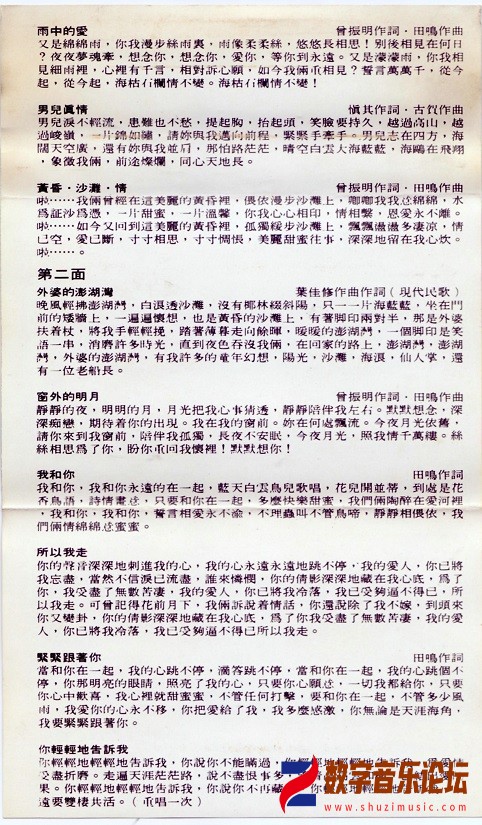 雨中的愛　曾振明作詞．田鳴作曲
又是綿綿雨，你我漫步絲雨裏，雨像柔柔絲，悠悠長相思！別後相見在何日
？夜夜夢魂牽，想念你，想念你，愛你，等你到永遠。又是濛濛雨，你我相
見細雨裡，心裡有千言，相對訴心願，如今我倆重相見？誓言萬萬千，從今
起，從今起，海枯石欄情不變！海枯石欄情不變！
男兒眞情　愼其作詞．古賀作曲
男兒淚不輕流，患難也不愁，提起胸，抬起頭，笑臉要持久，越過高山，越
過峻嶺，一片錦如繡，請妳與我邁向前程，緊緊手牽手。男兒志在四方，海
闊天空廣，還有妳與我並肩，那怕路茫茫，晴空白雲大海藍藍，海鷗在飛翔
，象徵我倆，前途燦爛，同心天地長。
黃昏．沙灘．情　曾振明作詞．田鳴作曲
啦……我倆曾經在這美麗的黃昏裡，偎依漫步沙灘上，卿卿我我忿綿綿，水
爲証沙爲憑，一片甜蜜，一片溫馨，你我心心相印，情相繫，恩愛永不離。
啦……如今又回到這美麗的黃昏裡，孤獨緩步沙灘上，飄飄濺濺多淒涼，情
已空，愛已斷，寸寸相思，寸寸惆悵，美麗甜蜜往事，深深地宿在我心炊。
啦……。
第二面
外婆的澎湖灣　葉佳修作曲作詞（現代民歌）
晚風輕拂澎湖灣，白浪逐沙灘，沒有椰林綴斜陽，只一一片海藍藍，坐在門
前的矮牆上，一遍遍懷想，也是黃昏的沙灘上，有著脚印兩對半，那是外婆
扶着杖，將我手輕輕挽，踏著薄暮走向餘暉，暖暖的澎湖灣，一個脚印是笑
語一串，消磨許多時光，直到夜色吞沒我倆，在回家的路上，澎湖灣，澎湖
灣，外婆的澎湖灣，有我許多的童年幻想，陽光，沙灘，海浪，仙人掌，還
有一位老船長。
窗外的明月　曾振明作詞．田鳴作曲
靜靜的夜，明明的月，月光把我心事猜透，靜靜陪伴我左右。默默想念，深
深痴戀，期待着你的出現。我在我的窗前。妳在何處飄流。今夜月光依舊，
請你來到我窗前，陪伴我孤獨，長夜不安眠，今夜月光，照我情千萬縷。絲
絲相思爲了你，盼你重回我懷裡！默默想你！
我和你　田鳴作詞
我和你，我和你永遠的在一起，藍天白雲鳥兒歌唱，花兒開並蒂，到處是花
香鳥語，詩情畫忿，只要和你在一起，多麼快樂甜蜜，我們倆陶醉在愛河裡
，我和你，我和你，誓言相愛永不渝，不理蟲叫不管鳥啼，靜靜相偎依，我
們倆情綿綿忿蜜蜜。
所以我走
你的聲音深深地刺進我的心，我的心永遠永遠地跳不停，我的愛人，你已將
我忘盡，當然不信淚已流盡，誰來憐憫，你的倩影深深地藏在我心底，爲了
你，我受盡了無數苦凄，我的愛人，你已將我冷落，我已受夠逼不得已，所
以我走。可曾記得花前月下，我倆訴說着情話，你還說除了我不嫁，到頭來
你又變卦，你的倩影深深地藏在我心底，爲了你我受盡了無數苦凄，我的愛
人，你已將我冷落，我已受夠逼不得已所以我走。
緊緊跟著你　田鳴作詞
當和你在一起，我的心跳不停，滴答跳不停，當和你在一起，我的心跳個不
停，你那明亮的眼睛，照亮了我的心，只要你心願忿，一切我都給你，只要
你心中歡喜，我心裡就甜蜜蜜，不管任何打擊，要和你在一起，不管多少風
雨，我愛你的心永不移，你把愛給了我，我多麼感激，你無論是天涯海角，
我要緊緊跟著你。
你輕輕地告訴我
你輕輕地輕輕地告訴我，你說你不能瞞過，你輕輕地輕輕地告訴我，
受盡折磨。走遍天涯茫茫路，說不盡恨事多，
果。你輕輕地輕輕地告訴我，你說你不再
遠要雙棲共活。（重唱一次）
数字音乐论坛
www.shuzimusic.com